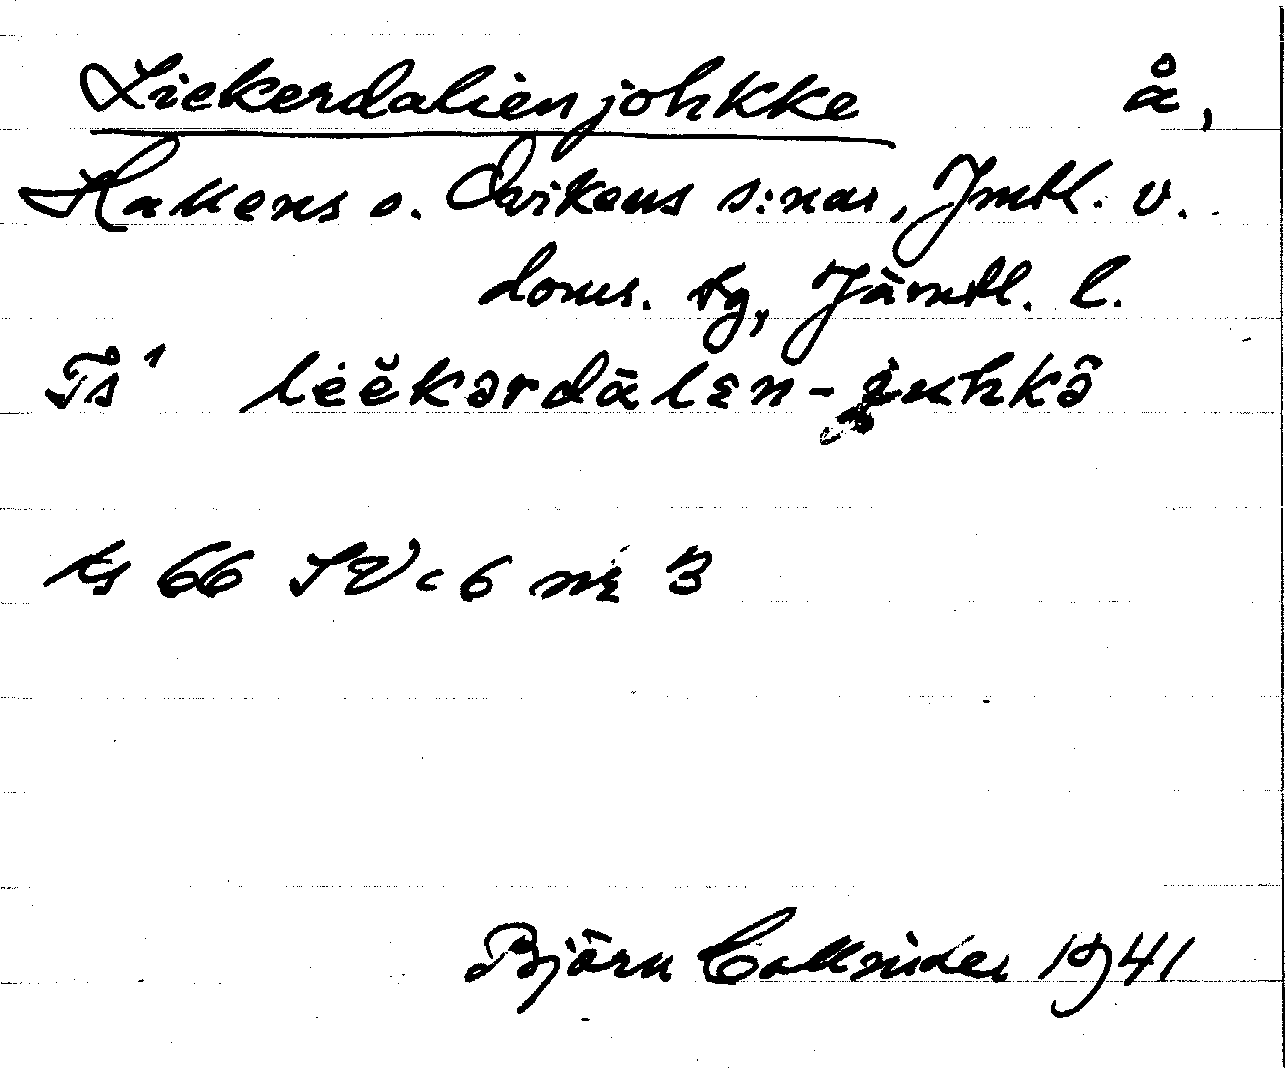 Liekerdalienjohkke å,
Hallens o. Ovikens s:nar, Jmtl. v.
doms. tg, Jämtl. l.
Ts¹ lėĕkərdālεn-juhkə̑
ks 66 SV c 6 nr 3
Björn Collinder 1941